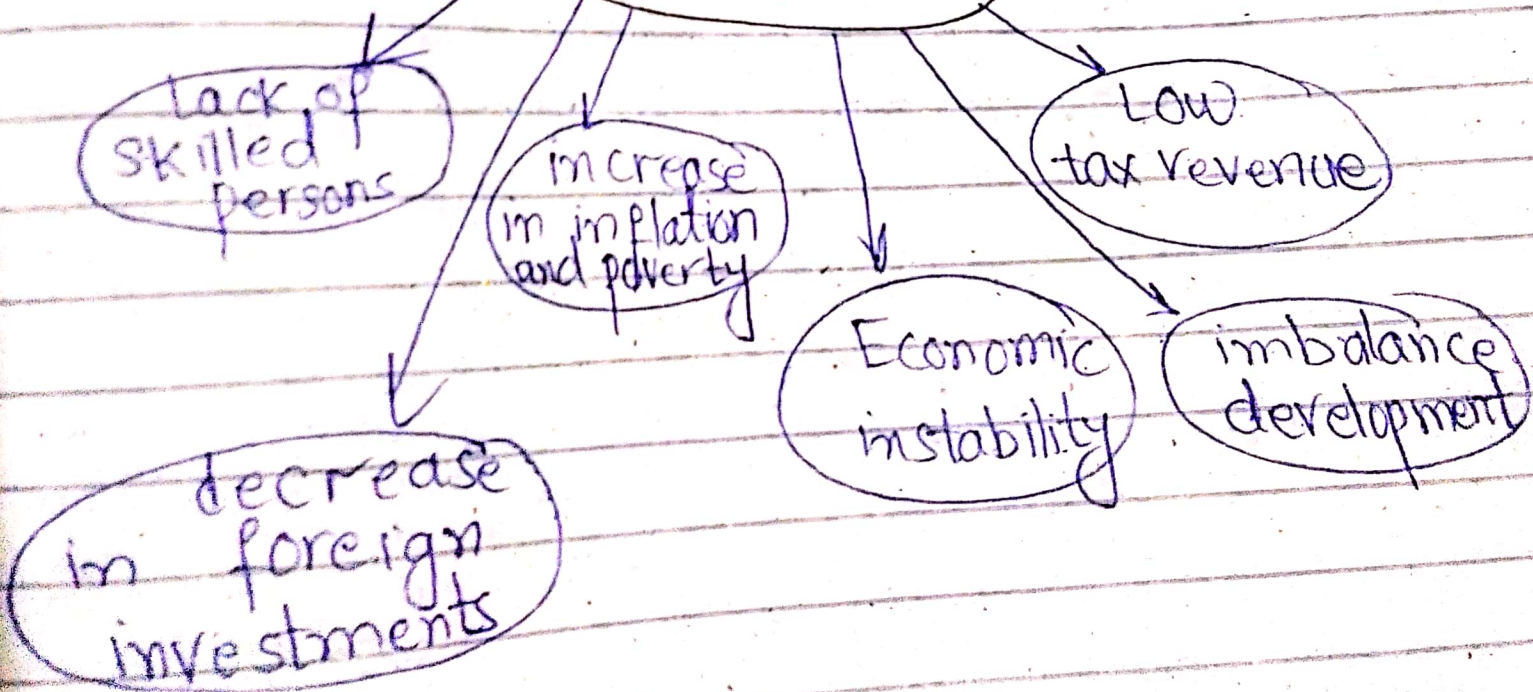 Lack of
skilled
persons
increase
in inflation
and poverty
Low
tax revenue
Economic
instability
imbalance
development
decrease
in foreign
investments